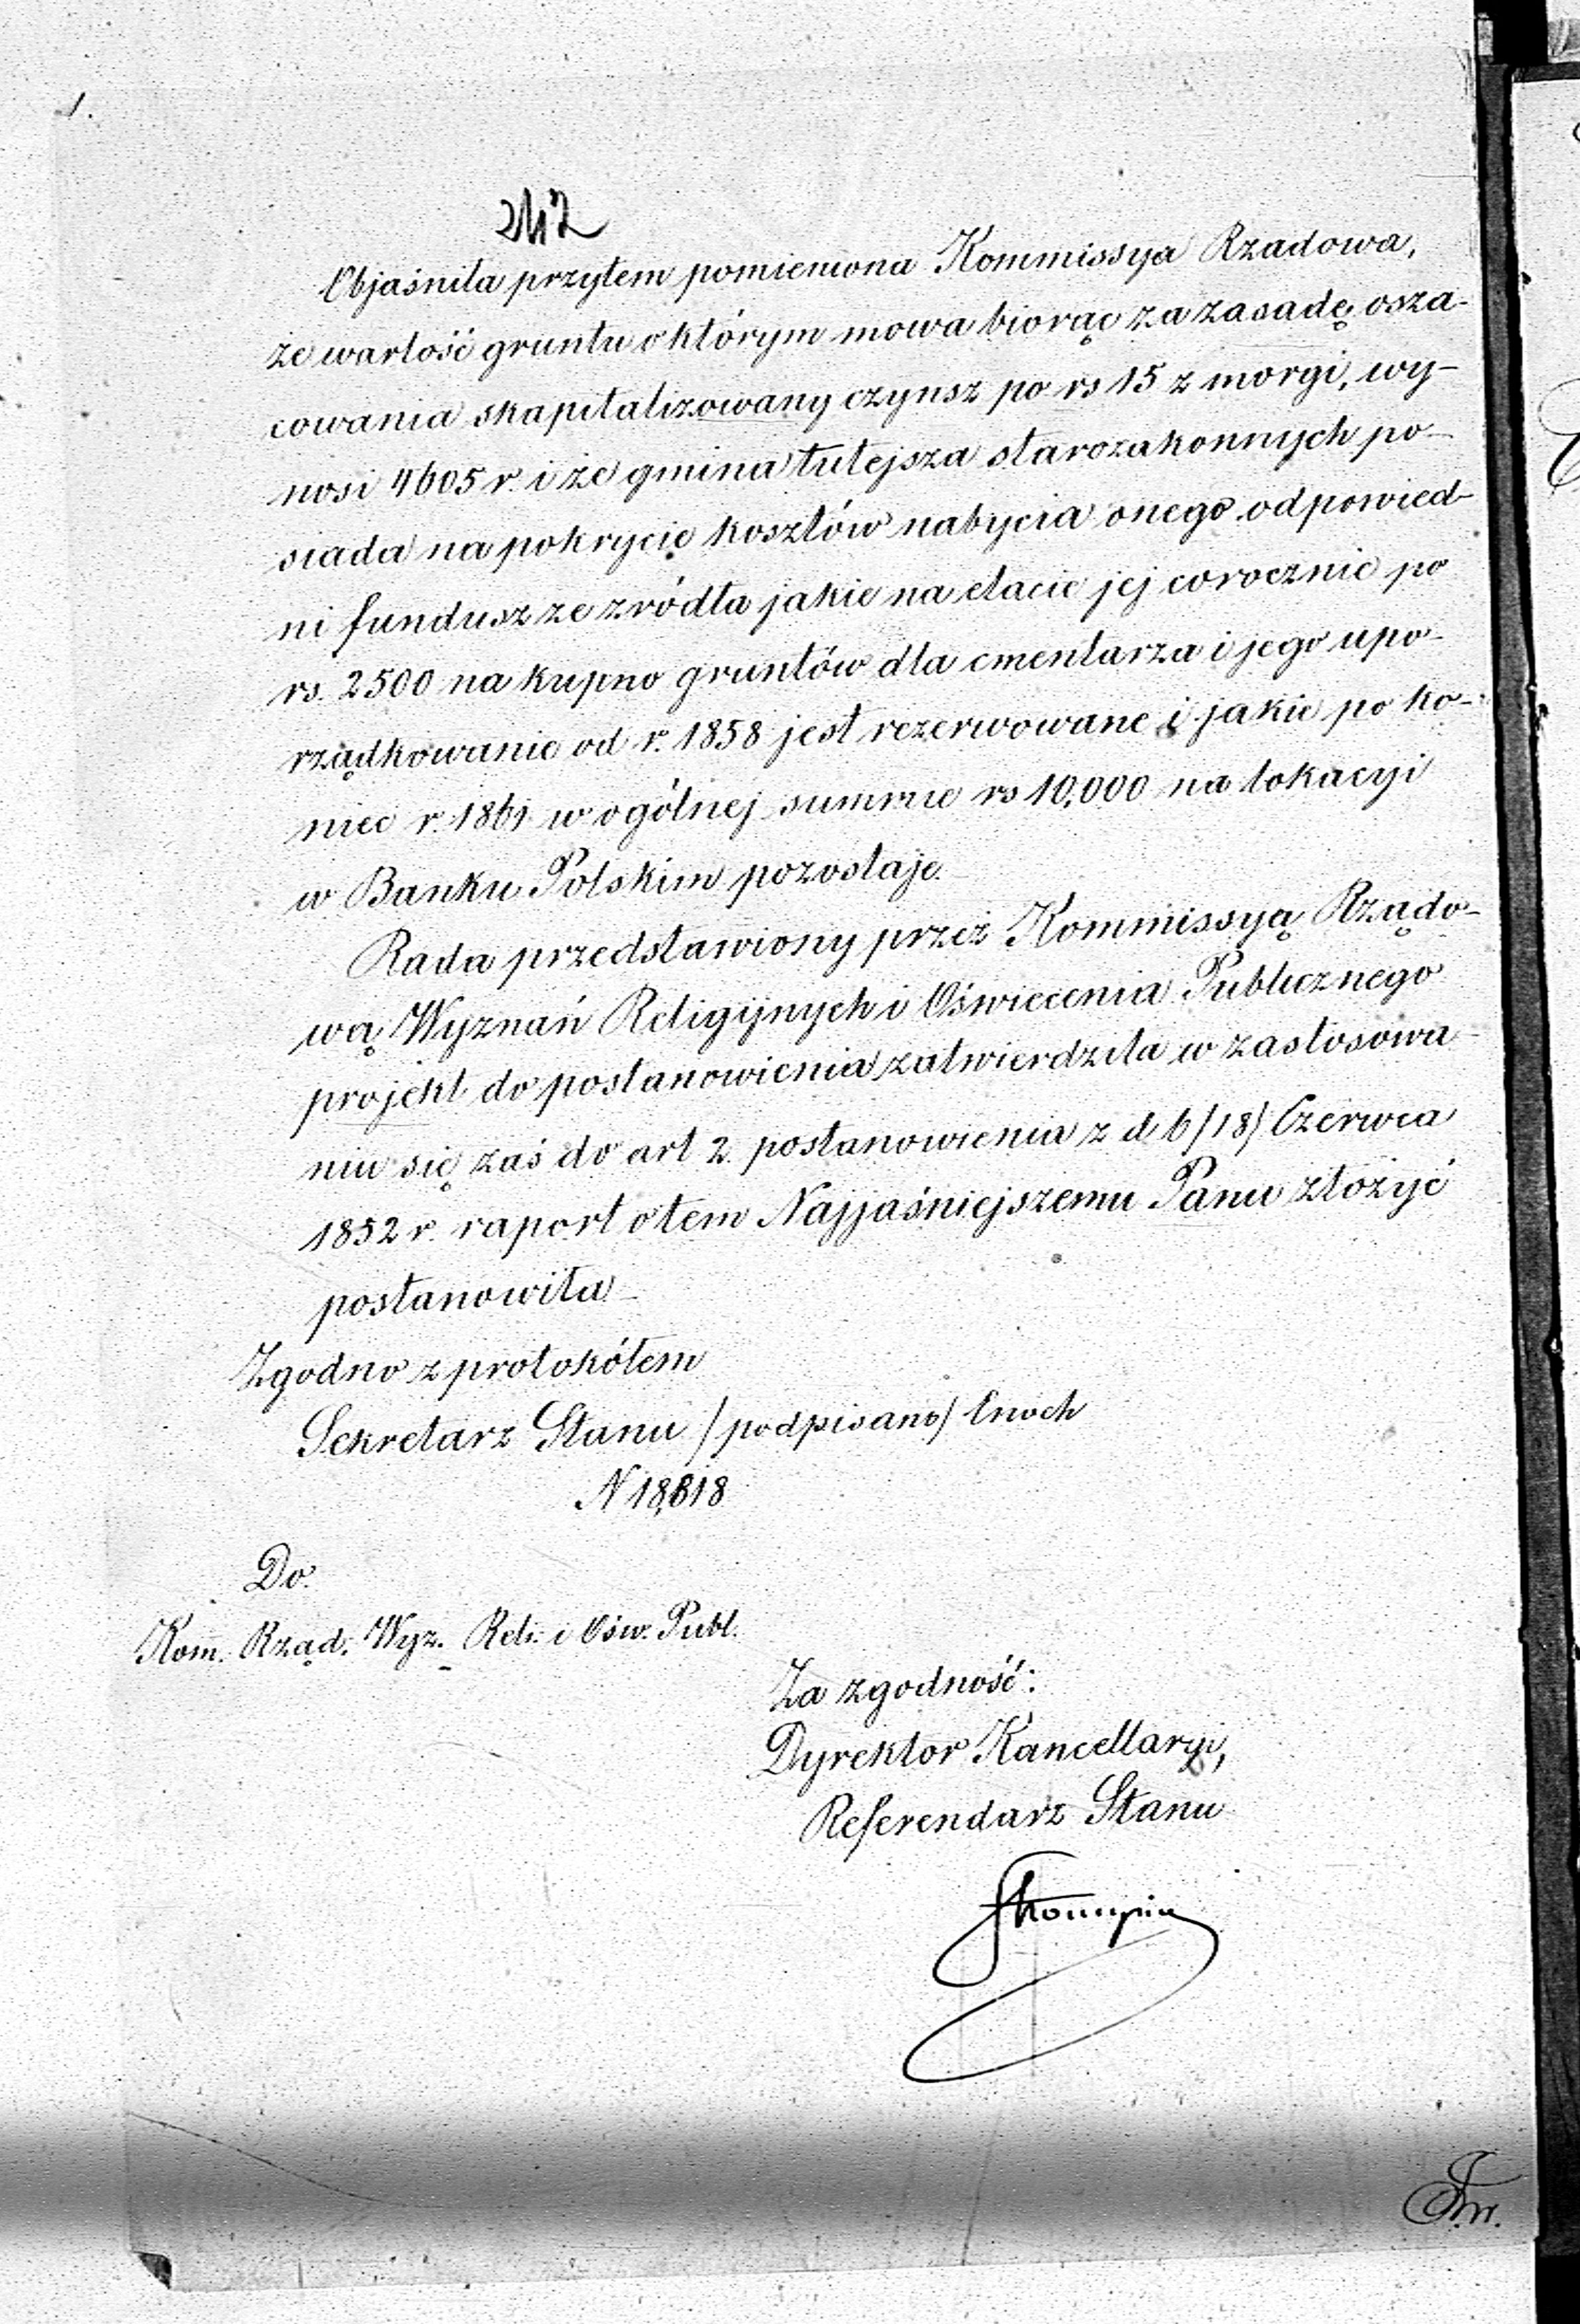 1.
242
Objaśniła przytem pomieniona Kommissya Rządowa,
że wartość gruntu o którym mowa biorąc za zasadę osza-
cowania skapitalizowany czynsz po rs 15 z morgi, wy-
nosi 4605 r. i że gmina tutejsza starozakonnych po-
siada na pokrycie kosztów nabycia onego odpowied-
ni fundusz ze zródła jakie na etacie jej corocznie po
rs. 2500 na kupno gruntów dla cmentarza i jego upo-
rządkowanie od r. 1858 jest rezerwowane i jakie po ko-
niec r. 1861 w ogólnej summie rs 10,000 na lokacyi
w Banku Polskim pozostaje.
Rada przedstawiony przez Kommissyą Rządo-
wą Wyznań Religijnych i Oświecenia Publicznego
projekt do postanowienia zatwierdziła w zastosowa-
niu się zaś do art 2. postanowienia z d. 6/18/ Czerwca
1852 r. raport o tem Najjaśniejszemu Panu złożyć
postanowiła
Zgodno z protokółem
Sekretarz Stanu /podpisano/ Enoch
N 18,618
Do
Kom. Rząd. Wyz. Rel. i Ośw. Publ.
Za zgodność:
Dyrektor Kancellaryi,
Referendarz Stanu